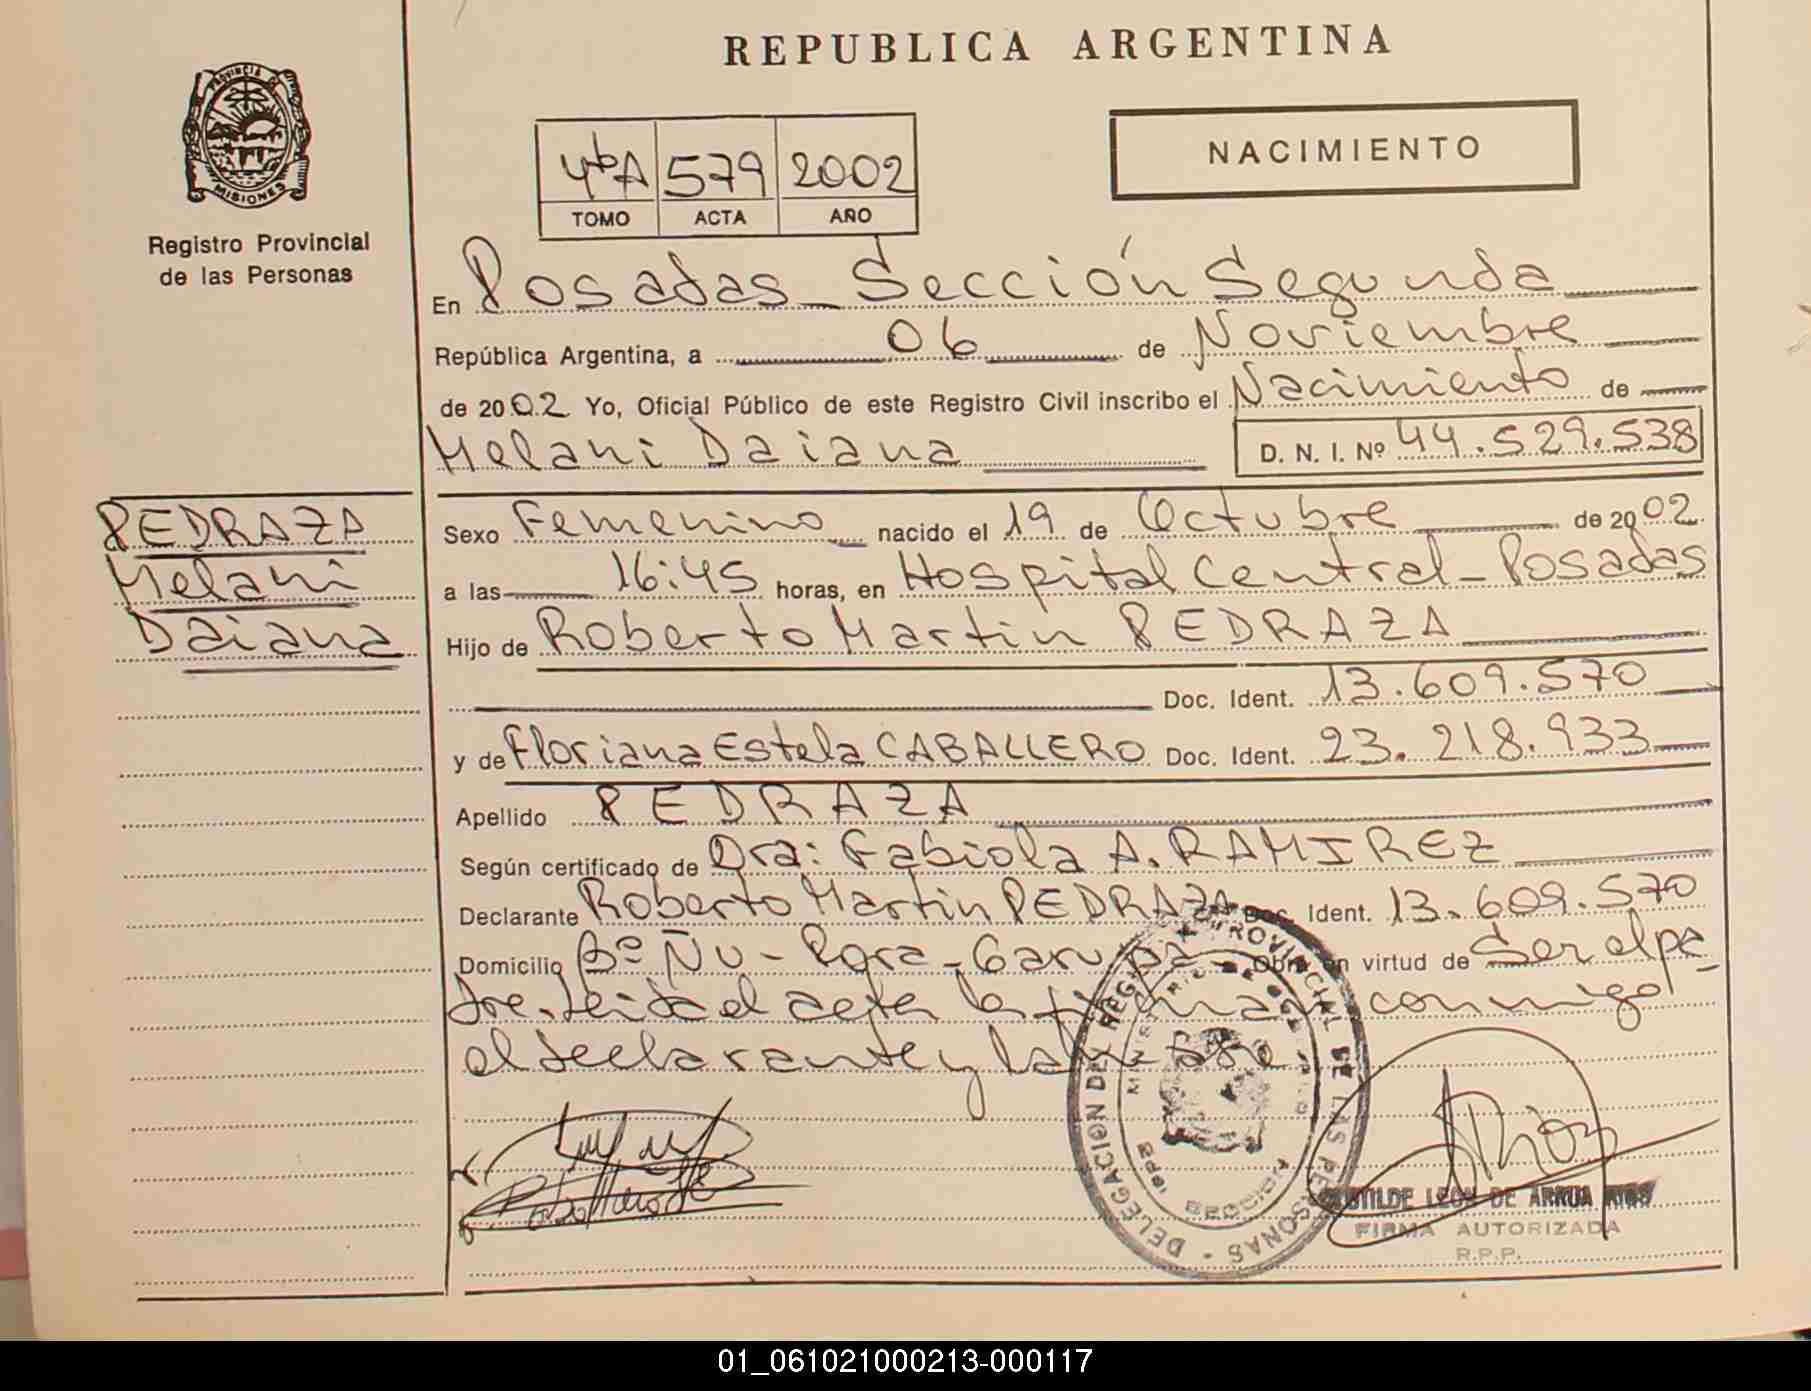 REPUBLICA ARGENTINA
PROVINCIA DE
MISIONES
Registro Provincial
de las Personas
4tbA 579 2002
TOMO ACTA AÑO
NACIMIENTO
En Posadas Sección Segunda
República Argentina, a 06 de Noviembre
de 2002 Yo, Oficial Público de este Registro Civil inscribo el Nacimiento de
Melani Daiana D. N. I. Nº 44.529.538
PEDRAZA
Melani
Daiana
Sexo Femenino nacido el 19 de Octubre de 2002
a las 16:45 horas, en Hospital Central - Posadas
Hijo de Roberto Martin PEDRAZA
Doc. Ident. 13.609.570
y de Floriana Estela CABALLERO Doc. Ident. 23.218.933
Apellido PEDRAZA
Según certificado de Dra: Fabiola A. RAMIREZ
Declarante Roberto Martin PEDRAZA Doc. Ident. 13.609.570
Domicilio Bº Ñu - Pora - Garupa - Obra en virtud de Ser el pa
dre. Leida el acta la firman conmigo
el declarante y la
DELEGACION DEL REGISTRO PROVINCIAL DE LAS PERSONAS
SECCION
LEON DE ARRUA RIOS
FIRMA AUTORIZADA
R.P.P.
01_061021000213-000117